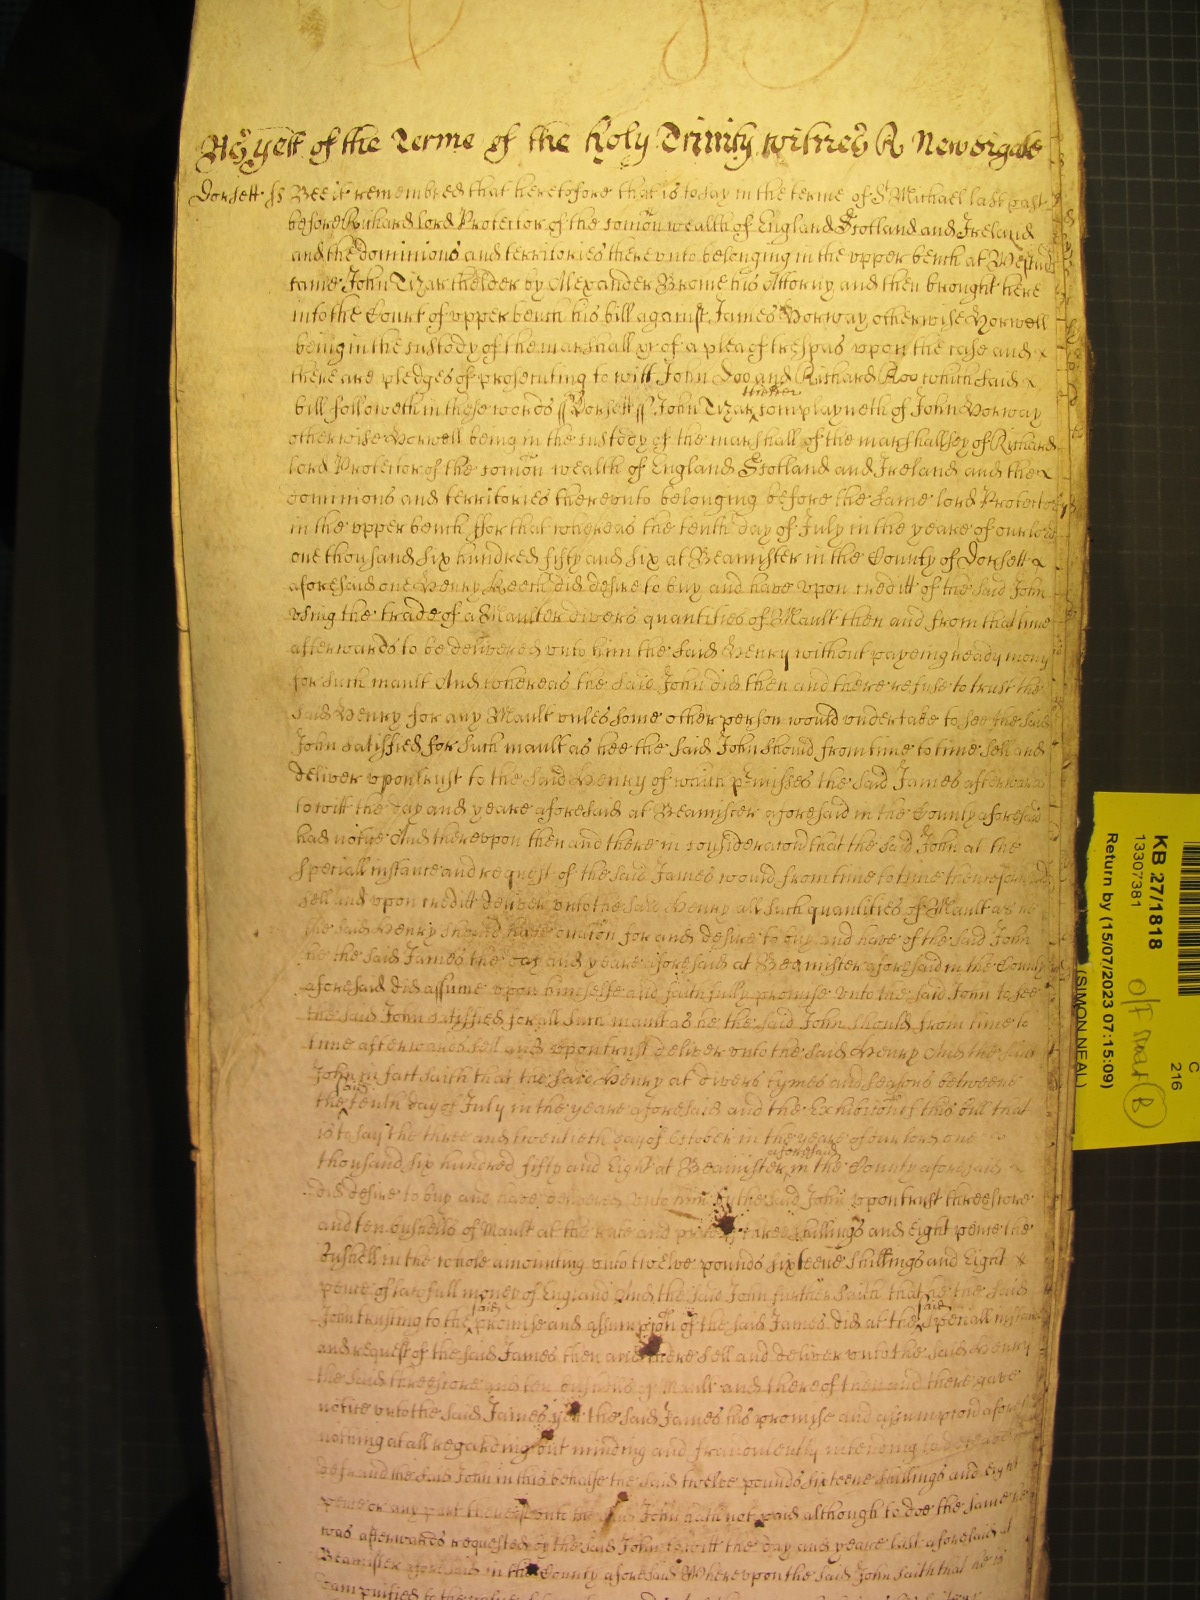 As yett of the Terme of the holy Trinity witnes R Newdigate
Dorsett ss Bee it remembred that heretofore that is to say in the terme of St Michael last past
before Richard lord Protector of the comon wealth of England Scotland and Ireland
and the dominions and territories therevnto belonging in the vpper bench at Westmr
came John Tizar thelder by Alexander Brome his Attorny and then brought here
into the Court of vpper bench his bill against James Horway otherwise Horwell
being in the custody of the marshall &c of a plea of trespas vpon the case and
there are pledges of prosecuting to witt John Doo and Richard Roo which said
thelder
bill followeth in these words ss Dorsett ss John Tizar complayneth of John Horway
otherwise Horwell being in the custody of the marshall of the marshallsey of Richard
lord Protector of the comon wealth of England Scotland and Ireland and the
dominions and territories therevnto belonging before the same lord Protector
in the vpper bench ffor that whereas the tenth day of July in the yeare of our lord
one thousand six hundred fifty and six at Beamister in the County of Dorsett
aforesaid one Henry Keech did desire to buy and have vpon creditt of the said John
vsing the trade of a Maulter divers quantities of Mault then and from that time
afterwards to be delivered vnto him the said Henry without payeing ready mony
for such mault And whereas the said John did then and there refuse to trust the
said Henry for any Mault vnles some other person would vndertake to see the said
John satisfied for such mault as hee the said John should from time to time sell and
deliver vpon trust to the said Henry of which premisses the said James afterwards
to witt the day and yeare aforesaid at Beamister aforesaid in the County aforesaid
had notice And therevpon then and there in consideracon that the said John at the
speciall instance and request of the said James would from time to time thence
sell and vpon creditt deliver vnto the said Henry all such quantities of Mault as he
the said Henry should have occasion for and desire to buy and have of the said John
he the said James the day and yeare aforesaid at Beamister aforesaid in the County
aforesaid did assume vpon himselfe and faithfully promise vnto the said John to see
the said John satisfied for all such mault as he the said John should from time to
time afterwards sell and vpon trust deliver vnto the said Henry And the said
John in fact saith that the said Henry at divers tymes and seasons betweene
said
the tenth day of July in the yeare aforesaid and the Exhibicon of this bill that
is to say the three and twentieth day of October in the yeare of our lord one
aforesaid
thousand six hundred fifty and Eight at Beamister in the County aforesaid
did desire to buy and have delivered vnto him by the said John vpon trust threescore
and ten bushells of Mault at the rate and price three shillings and Eight pence the
bushell in the whole amounting vnto twelve pounds sixteene shillings and Eight
pence of lawfull money of England And the said John further saith that he the said
said said
John trusting to the promise and assumpcon of the said James did at the speciall instance
and request of the said James then and there sell and deliver vnto the said Henry
the said threescore and ten bushells of Mault and thereof then and there gave
notice vnto the said James yett the said James his promise and assumpcon aforesaid
nothing at all regarding but minding and fraudulently intending
defraud the said John in this behalfe the said twelve pounds sixteene shillings and eight
pence or any part thereof vnto the said John hath not paid although to doe the same he
was afterwards requested by the said John to witt the day and yeare last aforesaid at
Beamister aforesaid in the County aforesaid Wherevpon the said John saith that he is
KB 27/1818
13307381
Return by (15/07/2023 07:15:09)
C
216
(SIMON NEAL)